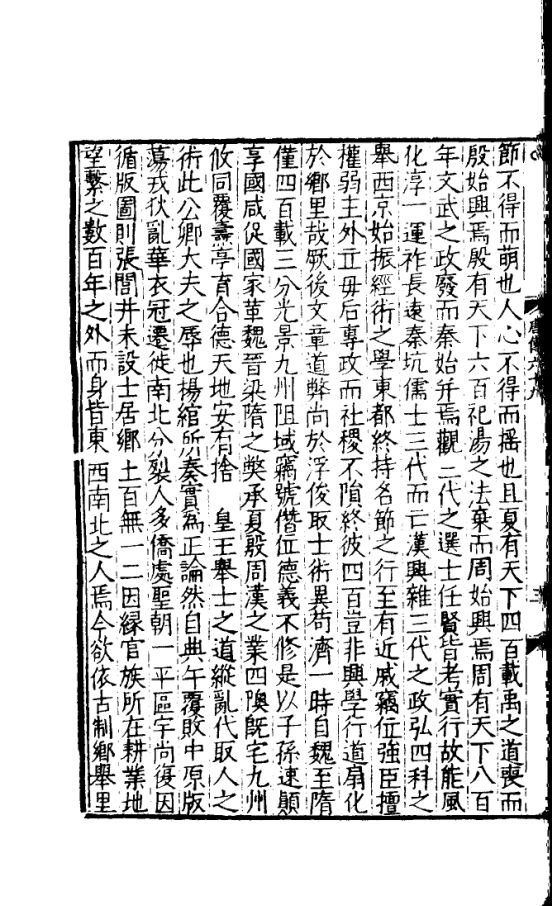 節不得而萌也人心不得而摇也且夏有天下四百載禹之道喪而
殷始興焉殷有天下六百祀湯之法棄而周始興焉周有天下八百
年文武之政發而秦始并焉觀二代之選士任賢皆考實行故能風
化淳一運祚長遠秦坑儒士二代而亡漢興雜三代之政弘四科之
舉西京始振經術之學東都終持名節之行至有近戚竊位強臣擅
權弱主外立毋后專政而社稷不隕終彼四百豈非興學行道扇化
於鄉里哉厥後文章道弊尚於浮侈取士術異苟濟一時自魏至隋
僅四百載三分光景九州阻域竊號僭位德義不修是以子孫速顛
享國咸促國家革魏晉梁隋之獘承夏殷周漢之業四隩旣宅九州
攸同覆燾亭育合德天地安有捨 皇王舉士之道縱亂代取人之
術此公卿大夫之辱也楊綰所奏實為正論然自典午覆敗中原版
蕩戎狄亂華衣冠遷徙南北分裂人多僑處聖朝一平區宇尚復因
循版圖則張閭井未設士居鄉土百無一二因緣官族所在耕業地
望繫之數百年之外而身皆東西南北之人焉今欲依古制鄉舉里